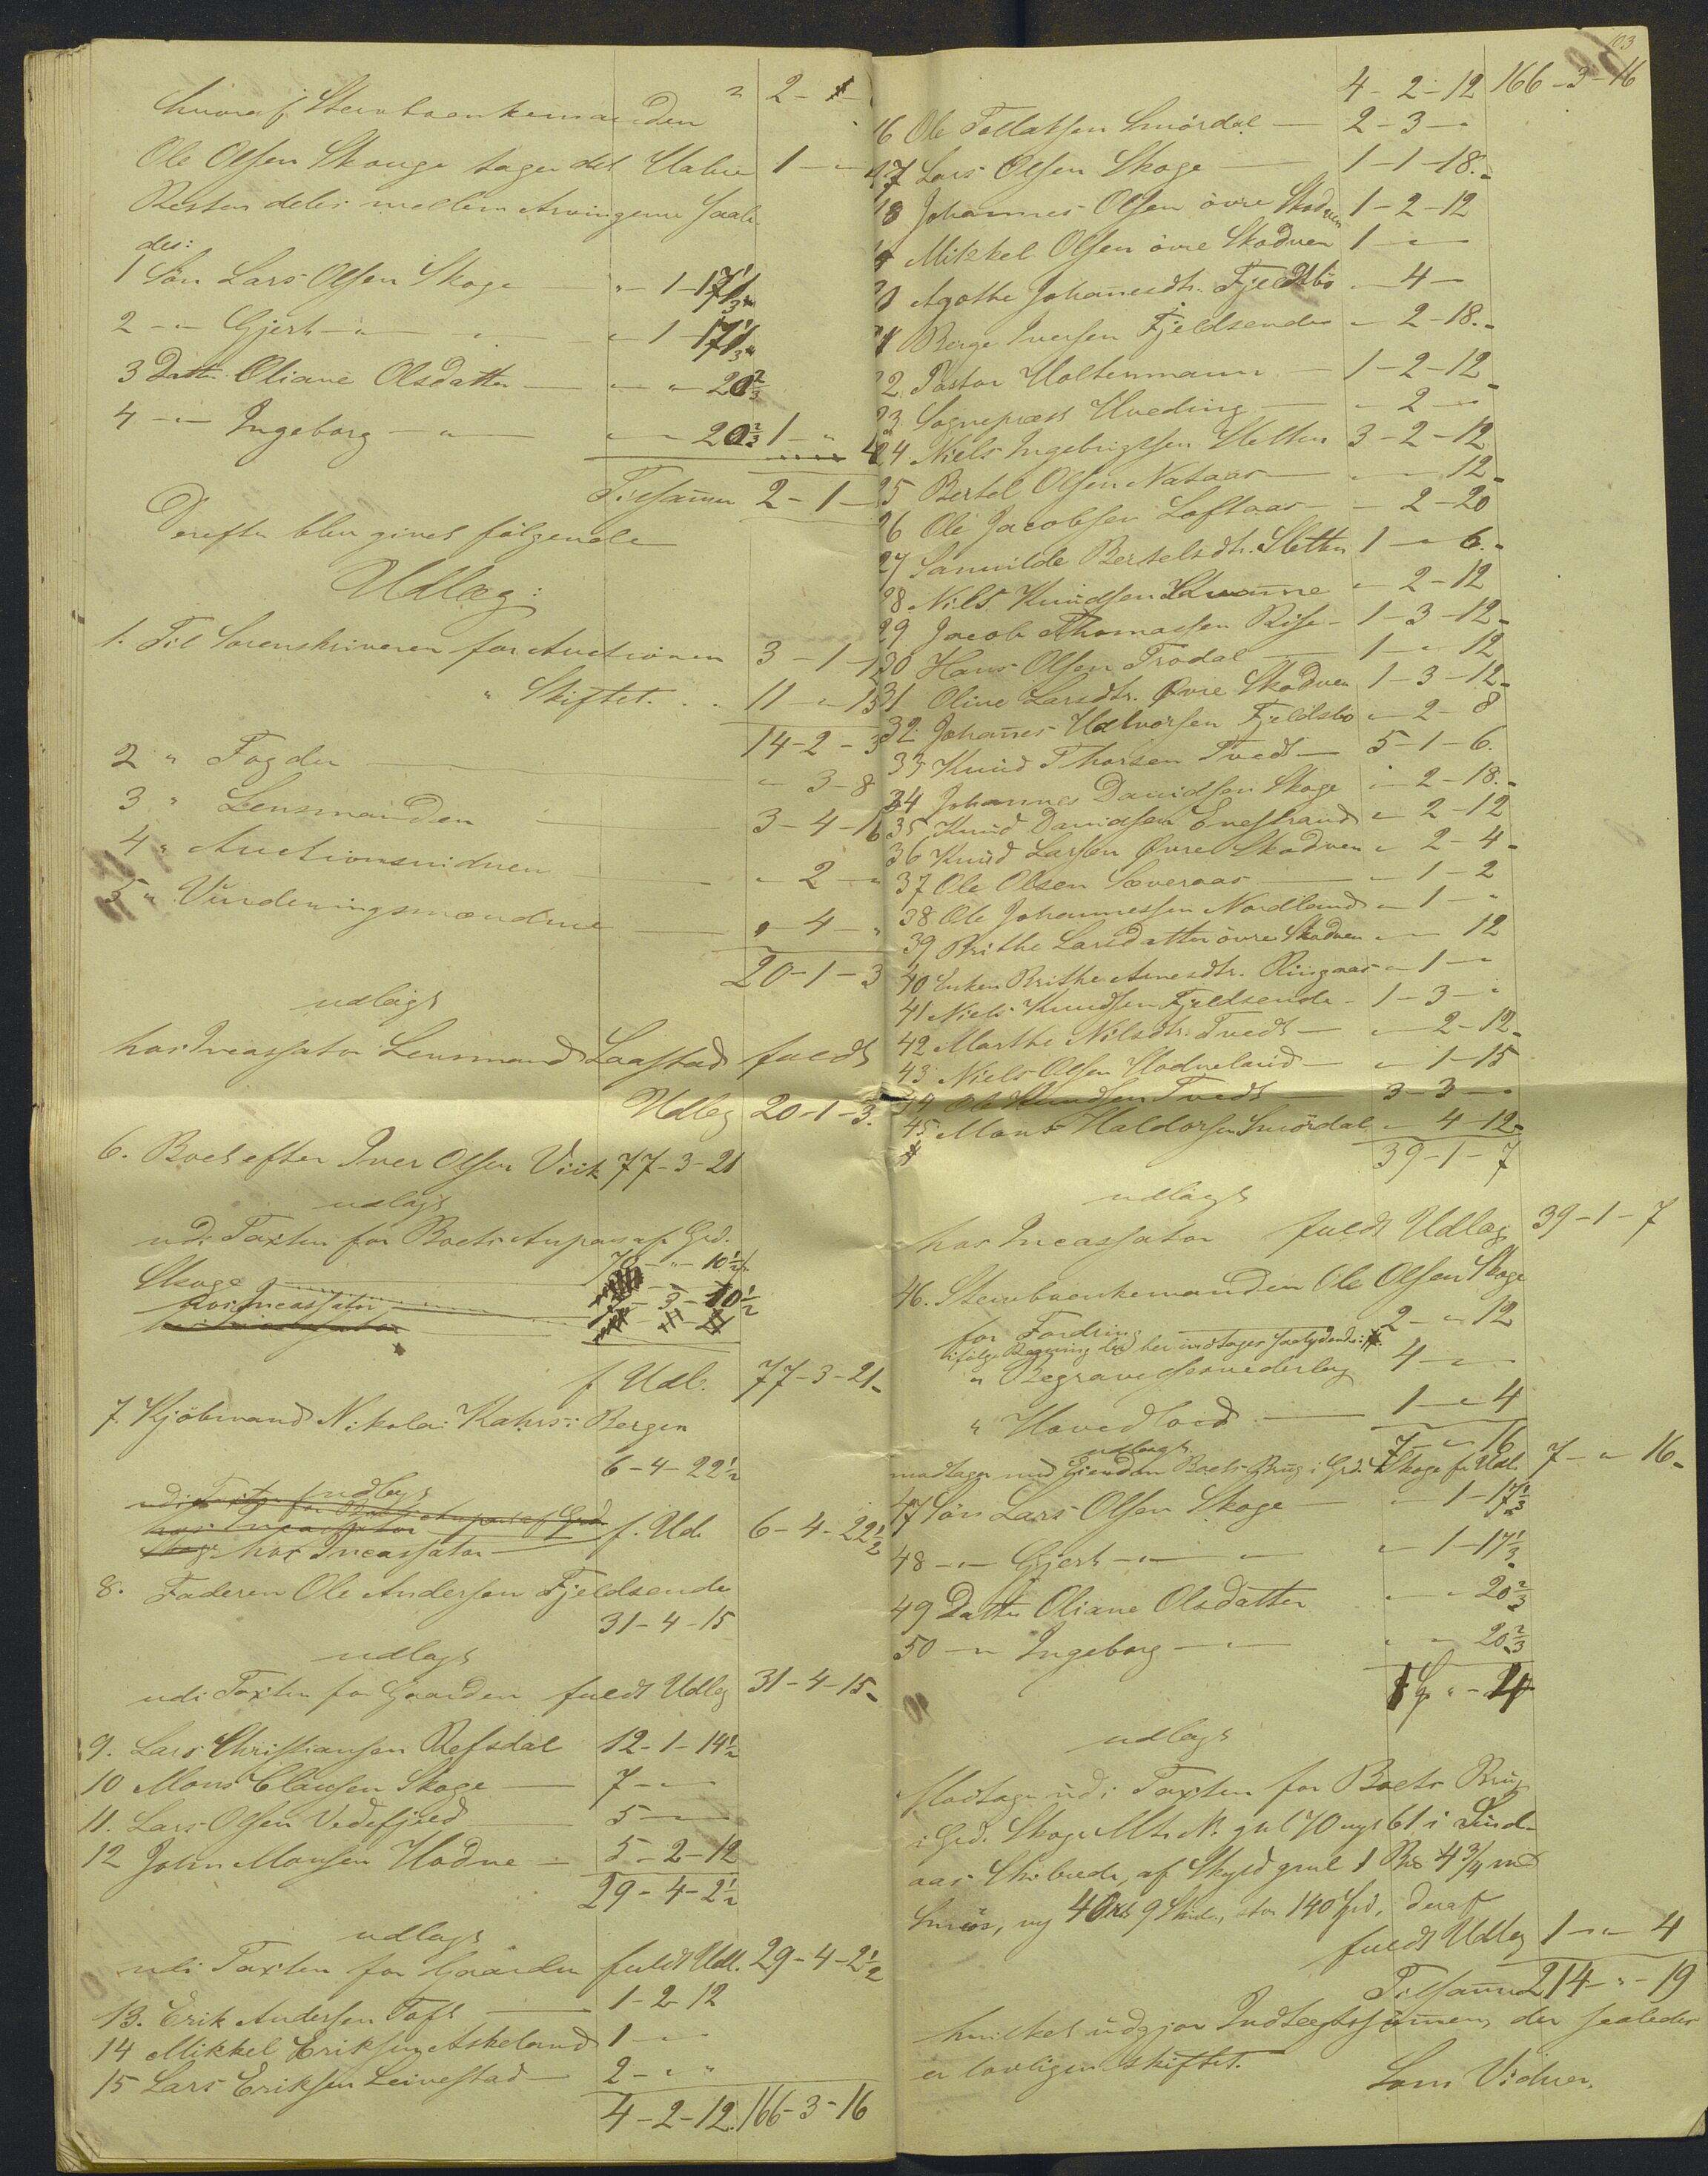 hvoraf Stervboenkemanden " 2 - 1 -
Ole Olsen Skauge tager det Halve 1 - " - 
Resten deles mellem Arvingerne saale-
des:
1 Søn Lars Olsen Skoge " - 1 - 17 1/3
2 - " - Gjert - " - " - " - 1 - 17 1/3
3 Datter Oliane Olsdatter - " - " - 20 2/3
4 - " - Ingeborg - " - " - 20 2/3 1 - " - 4
Tilsamen 2 - 1 -
Derefter blev givet følgende
Udlæg:
1. Til Sorenskriveren for Auctionen 3 - 1 - 12
" Skiftet . . . 11 - " - 15
14 - 2 - 3
2 " Fogden - " - 3 - 8
3 " Lensmanden - 3 - 4 - 16
4 " Auctionsvidnen - " - 2 - "
5 " Vurderingsmændene - " - 4 - "
20 - 1 - 3
udlagt
hos Incassator Lensmand Laastad fuldt
Udlæg 20 - 1 - 3.
6. Boet efter Iver Olsen Viik 77 - 3 - 21
udlagt
udi Taxten for Boets Anpart af Grd.
Skoge 70 - " - 10 1/2
hos Incassator - 3 - 10 1/2
f Udl. 77 - 3 - 21
7. Kjøbmand Nikolai Kahrs i Bergen
6 - 4 - 22 1/2
udlagt
hos Incassator f. Udl 6 - 4 - 22 1/2
8. Faderen Ole Andersen Fjeldsende
31 - 4 - 15
udlagt
udi Taxten for Gaarden fuldt Udlæg 31 - 4 - 15
9. Lars Christiansen Refsdal 12 - 1 - 14 1/2
10 Mons Clausen Skoge - 7 - " -
11. Lars Olsen Vedefjeld 5 - " -
12 John Monsen Hodne - 5 - 2 - 12
29 - 4 - 2 1/2
udlagt
udi Taxten for Gaarden fuldt Udl. 29 - 4 - 2 1/2
13. Erik Andersen Toft - 1 - 2 - 12
14 Mikkel Eriksen Askeland 1 - " -
15 Lars Eriksen Leivestad - 2 - " - "
4 - 2 - 12. 166 - 3 - 16
103
4 - 2 - 12 166 - 3 - 16
16 Ole Tollafsen Smördal - 2 - 3 - "
17 Lars Olsen Skoge - 1 - 1 - 18.
18 Johannes Olsen övre Skodven 1 - 2 - 12
19 Mikkel Olsen övre Skodven 1 - " -
20 Agathe Johanesdtr. Fjeldsbö " - 4 -
21 Berge Iversen Fjeldsende " - 2 - 18.
22. Pastor Holtermann - 1 - 2 - 12
23. Sognepræst Hveding - " - 2 - "
24. Niels Ingebrigtsen Sletten 3 - 2 - 12
25 Bertel Olsen Nataas - " - " 12
26 Ole Jacobsen Loftaas - " - 2 - 20
27 Sanvilde Bertelsdtr. Sletten 1 - " 6.
28. Nils Knudsen " - 2 - 12
29 Jacob Thomassen Rise - 1 - 3 - 12
30 Hans Olsen Trodal 1 - " 12
31 Oline Larsdtr. Øvre Skodven 1 - 3 - 12
32 Johanes Halvorsen Fjeldsbö " - 2 - 8
33 Knud Thorsen Tvedt - 5 - 1 - 6.
34 Johannes Davidsen Skoge " - 2 - 18.
35 Knud Davidsen Enestrand " - 2 - 12
36 Knud Larsen Øvre Skodven " 2 - 4
37 Ole Olsen Sæveraas - " - 1 - 2
38. Ole Johannessen Nordland " - 1 - "
39 Brithe Larsdatter övre Skodven " - 12
40 Enken Brithe Arnesdtr. Ringaas " - 1 - "
41 Niels Knudsen Fjeldsende - 1 - 3 - "
42 Marthe Nilsdtr. Tvedt - " - 2 - 12
43 Niels Olsen Hodneland - " - 1 - 15
44 Ole Knudsen Tvedt 3 - 3 - "
45 Mons Haldorsen Smördal " - 4 - 12
39 - 1 - 7
udlagt
hos Incassator fuldt Udlæg 39 - 1 - 7
46. Stervboenkemanden Ole Olsen Skoge
for Fordring 2 - " 12
ifølge Regning der her indtages saalydende:
" Begravelsesvederlag 4 - " -
" Hovedlod - 1 - " 4
7 - " 16
udlagt
modtager udi Eiendom Boets Brug i Grd. Skoge f. Udl. 7 - " 16
47 Søn Lars Olsen Skoge - " - 1 - 17 1/3
48 - " - Gjert - " - " - " - 1 - 17 1/3
49 Datter Oliane Olsdatter " - " 20 2/3
50 - " Ingeborg - " - " " 20 2/3
1 " - 4
udlagt
Modtager udi Taxten for Boets Brug
i Grd. Skoge Mtr. N. gml 70 nyt 61 i Sund-
aas Skibrede, af Skyld gml 1 Pd 4 3/4 mrk
Smör, ny 4 Ort 9 Skil., stor 140 Spd, deraf
fuldt Udlæg 1 - " - 4
Tilsamen 214 - " - 19
hvilket udgjør Indtægtssumen, der saaledes
er lovligen skiftet.
Som Vidner.